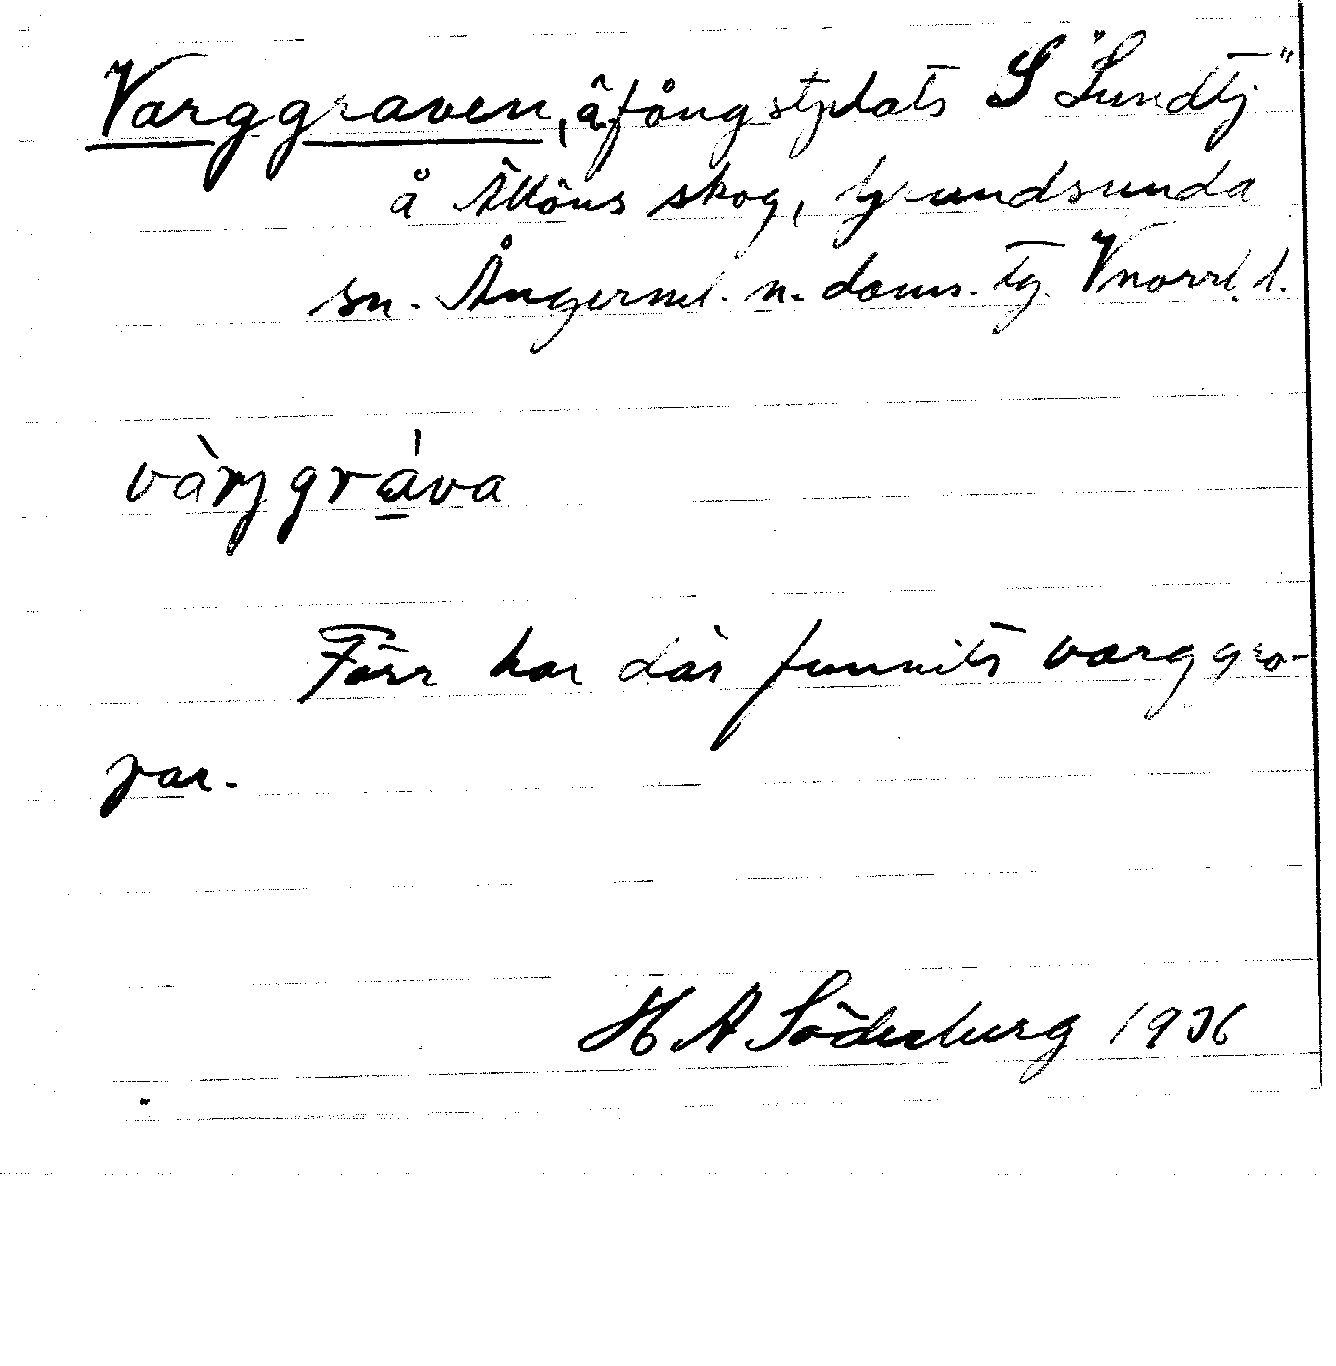 Varggraven, ä. fångstplats S "Lundtj"
å Älköns skog, Grundsunda
sn. Ångerml. n. doms. tg. Vnorrl. l.
vàrjgráva
Förr har där funnits varggro-
par.
H A Söderberg 1936